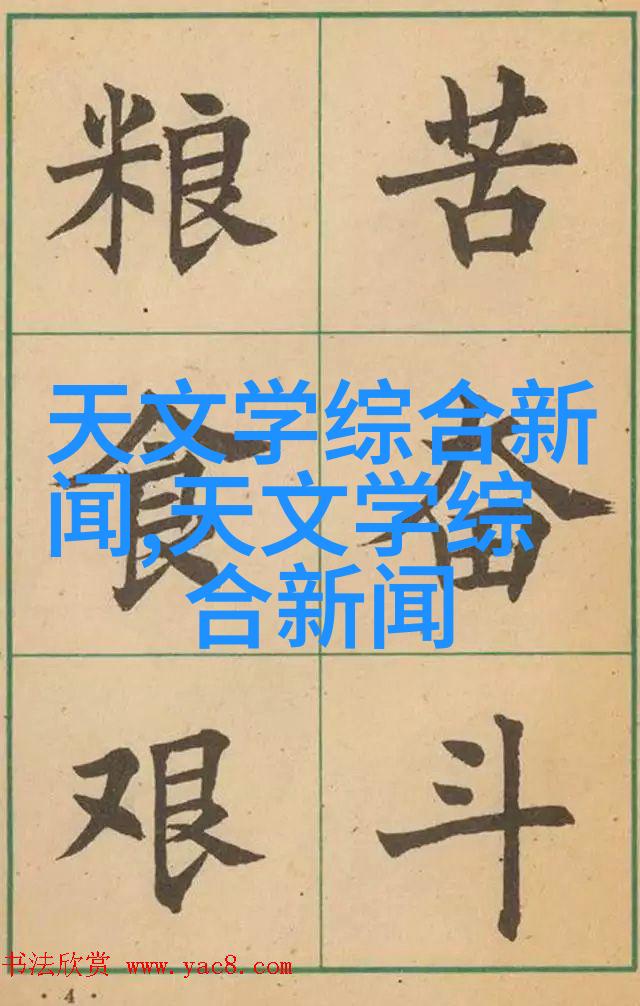 粮 苦
食 奋
艰 斗
天文学综合新
闻,天文学综
合新闻
书法欣赏 www.yac8.com
· 4 ·